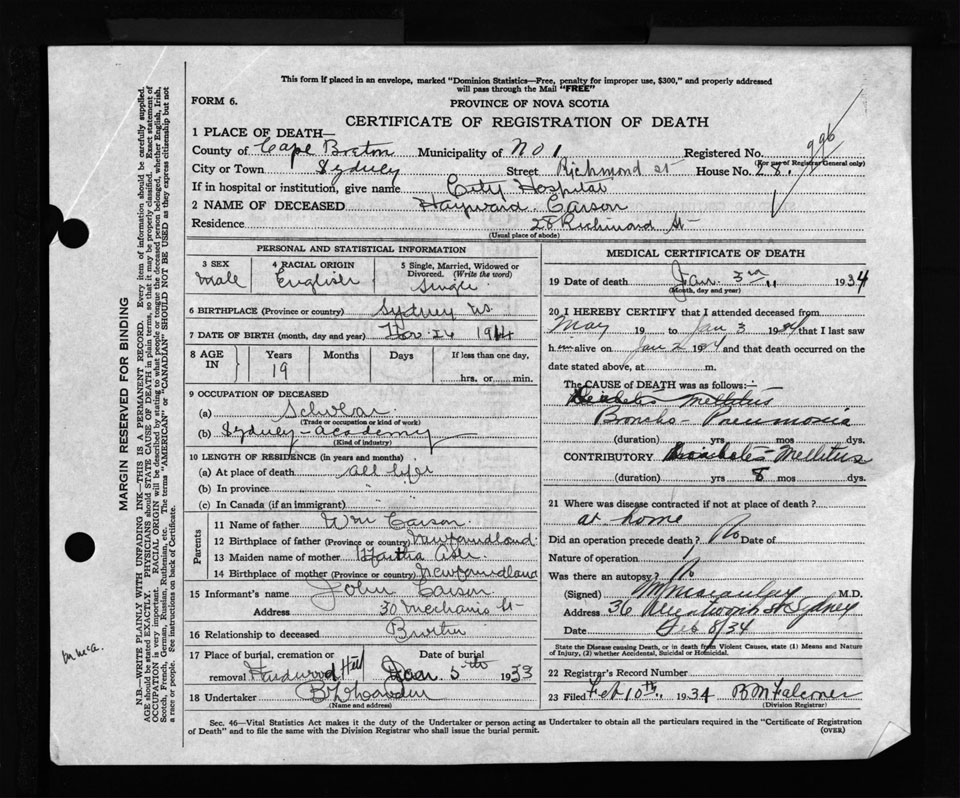 This form if placed in an envelope, marked "Dominion Statistics—Free, penalty for improper use, $300," and properly addressed
will pass through the Mail "FREE"
FORM 6.
PROVINCE OF NOVA SCOTIA
CERTIFICATE OF REGISTRATION OF DEATH
996
1 PLACE OF DEATH—
County of Cape Breton Municipality of No 1 Registered No.
(For use of Registrar General only)
City or Town Sydney Street Richmond st House No. 28.
If in hospital or institution, give name City Hospital
2 NAME OF DECEASED Hayward Carson
Residence 28 Richmond St
(Usual place of abode)
PERSONAL AND STATISTICAL INFORMATION
3 SEX
male
4 RACIAL ORIGIN
English
5 Single, Married, Widowed or Divorced. (Write the word)
Single
6 BIRTHPLACE (Province or country) Sydney NS.
7 DATE OF BIRTH (month, day and year) 1914
8 AGE IN Years Months Days If less than one day,
19 hrs. or min.
9 OCCUPATION OF DECEASED
(a) Scholar
(Trade or occupation or kind of work)
(b) Sydney-academy
(Kind of industry)
10 LENGTH OF RESIDENCE (in years and months)
(a) At place of death all life
(b) In province " "
(c) In Canada (if an immigrant)
Parents
11 Name of father Wm Carson.
12 Birthplace of father (Province or country) Newfoundland.
13 Maiden name of mother
14 Birthplace of mother (Province or country) Newfoundland
15 Informant's name John Carson
Address 30 Mechanic St
16 Relationship to deceased
17 Place of burial, cremation or removal Hardwood Hill
Date of burial Jan. 5th 1933
18 Undertaker
(Name and address)
MEDICAL CERTIFICATE OF DEATH
19 Date of death Jan. 3rd 1934
(Month, day and year)
20 I HEREBY CERTIFY that I attended deceased from
May 19 to Jan 3 1934 that I last saw
him alive on Jan 2 1934 and that death occurred on the
date stated above, at m.
The CAUSE OF DEATH was as follows:—
Diabetes Mellitus
Broncho Pneumonia
(duration) yrs mos dys.
CONTRIBUTORY Diabetes Mellitus
(duration) yrs 8 mos dys.
21 Where was disease contracted if not at place of death?
at home
Did an operation precede death? No Date of
Nature of operation
Was there an autopsy? No
(Signed) M.D.
Address 36 Sydney
Date Feb 8/34
State the Disease causing Death, or in death from Violent Causes, state (1) Means and Nature of Injury, (2) whether Accidental, Suicidal or Homicidal.
22 Registrar's Record Number
23 Filed Feb 10th 1934 B M Falconer
(Division Registrar)
Sec. 46—Vital Statistics Act makes it the duty of the Undertaker or person acting as Undertaker to obtain all the particulars required in the "Certificate of Registration
of Death" and to file the same with the Division Registrar who shall issue the burial permit.
(OVER)
MARGIN RESERVED FOR BINDING
N.B.—WRITE PLAINLY WITH UNFADING INK—THIS IS A PERMANENT RECORD. Every item of information should be carefully supplied.
AGE should be stated EXACTLY. PHYSICIANS should STATE CAUSE OF DEATH in plain terms, so that it may be properly classified. Exact statement of
OCCUPATION is very important. RACIAL ORIGIN will be described by stating to what people or tongue the deceased person belonged, whether English, Irish,
Scotch, French, German, Russian, Ruthenian, etc. The terms "AMERICAN" or "CANADIAN" SHOULD NOT BE USED as they express citizenship but not
a race or people. See instructions on back of Certificate.